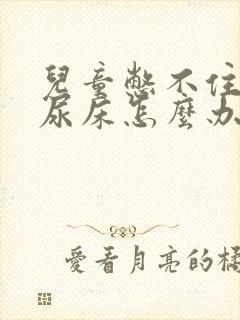 兒童憋不住
尿床怎麼办
愛看月亮的橘